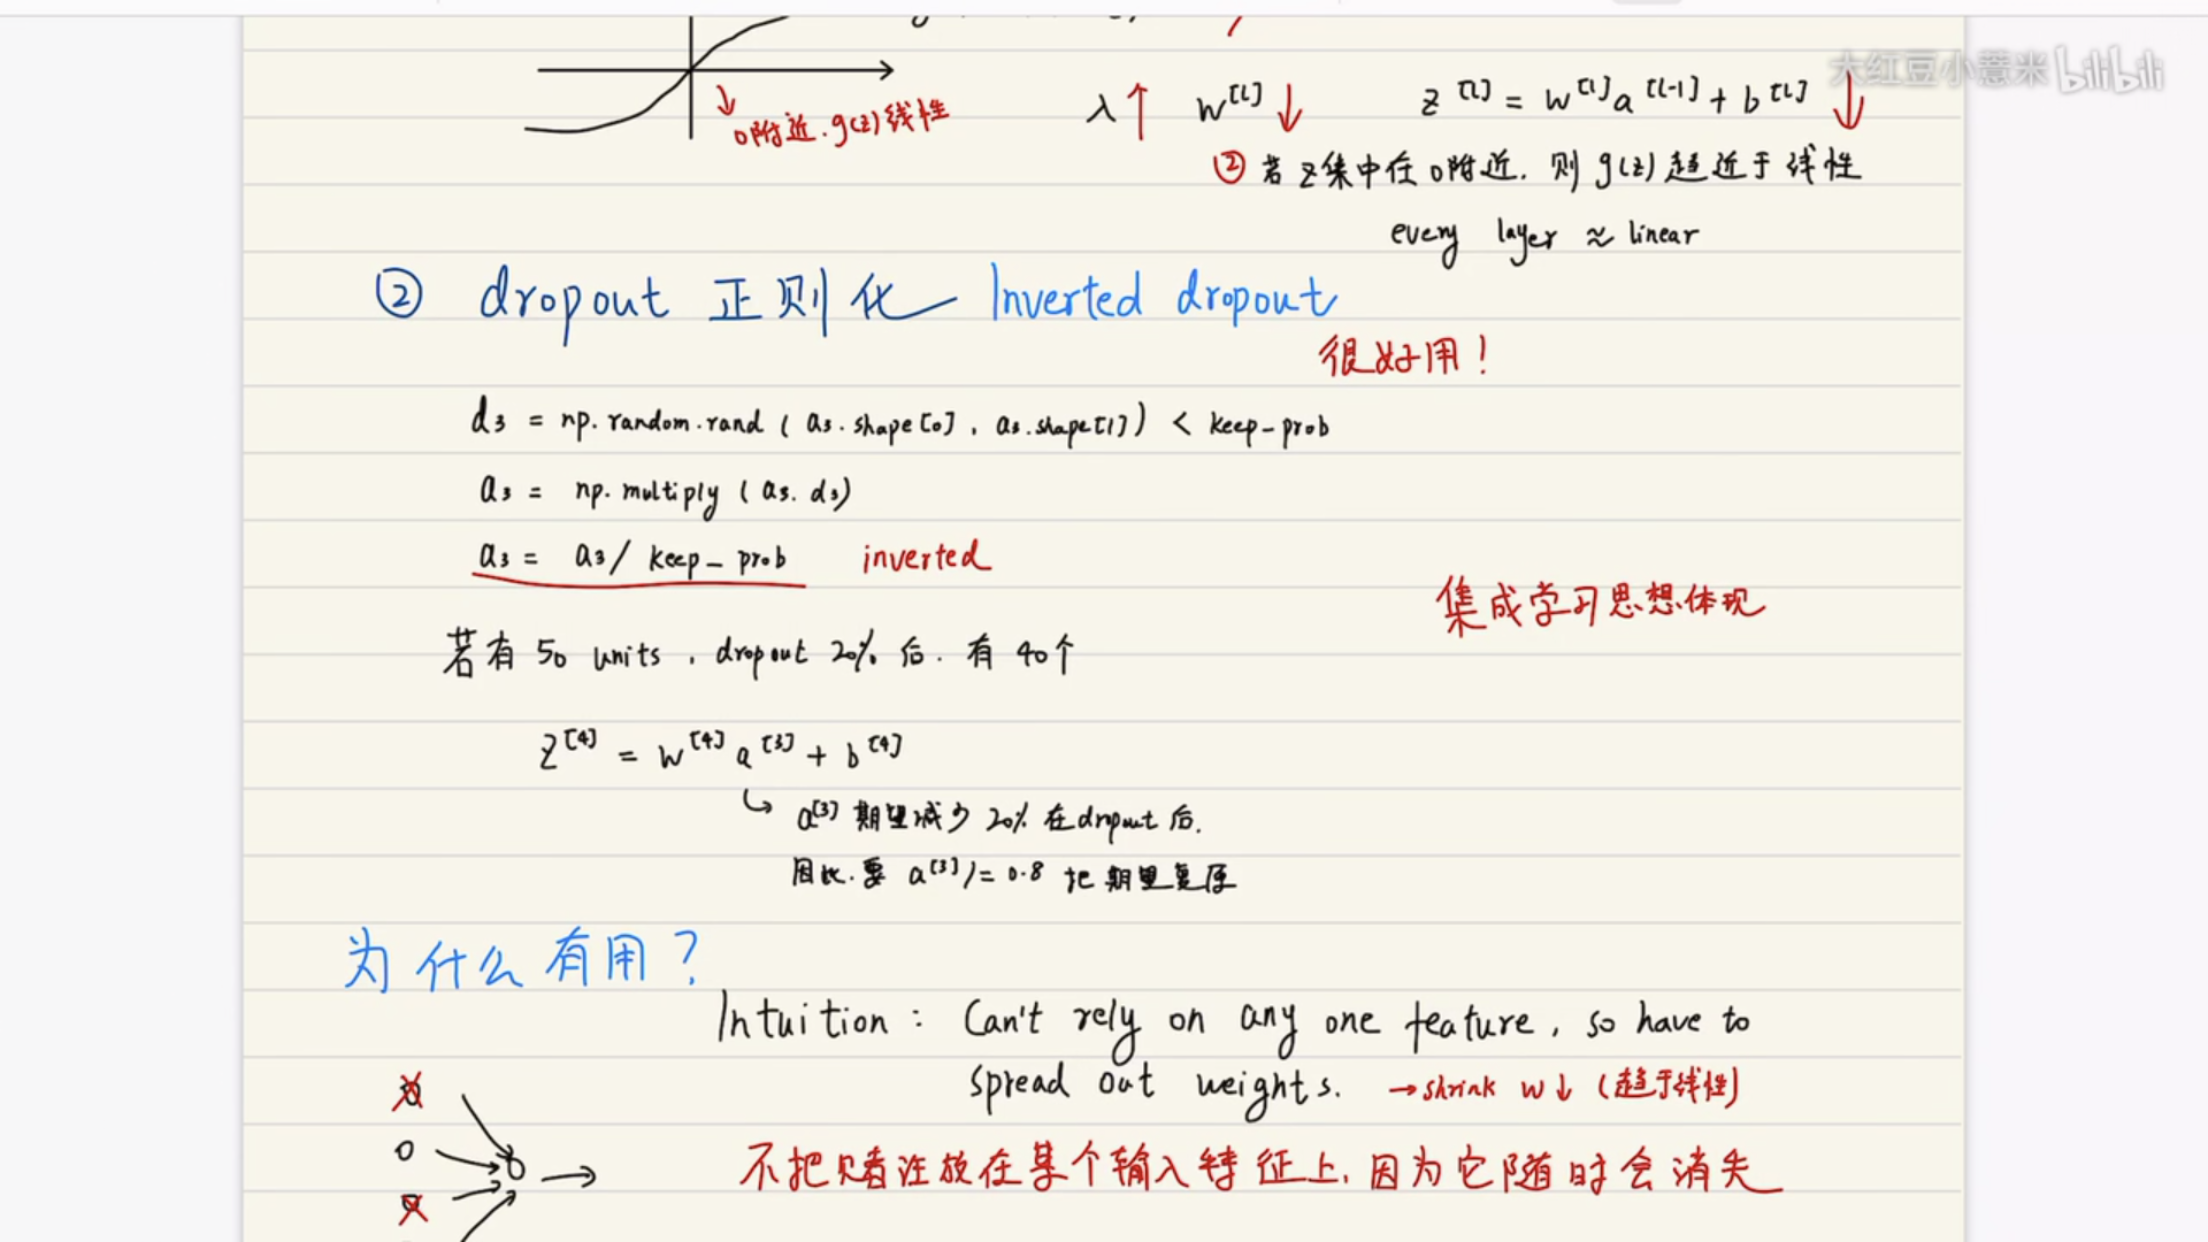 大红豆小薏米 bilibili
0附近.g(z)线性
λ↑ w^[l]↓ z^[l] = w^[l]a^[l-1] + b^[l] ↓
② 若z集中在0附近. 则g(z)趋近于线性
every layer ≈ linear
② dropout 正则化 Inverted dropout
很好用!
d3 = np.random.rand ( a3.shape[0] , a3.shape[1] ) < keep-prob
a3 = np.multiply ( a3. d3)
a3 = a3 / keep-prob inverted
集成学习思想体现
若有 50 units , dropout 20% 后. 有 40个
z^[4] = w^[4] a^[3] + b^[4]
a^[3] 期望减少 20% 在dropout 后.
因此.要 a^[3] /= 0.8 把期望复原
为什么有用?
Intuition : Can't rely on any one feature, so have to
spread out weights. →shrink w↓ (趋于线性)
不把赌注放在某个输入特征上, 因为它随时会消失